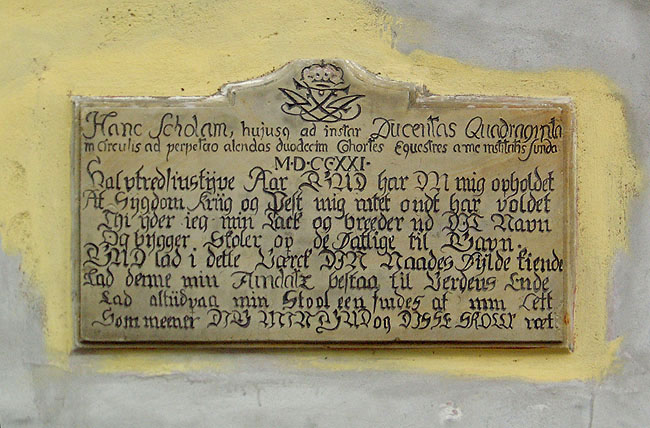 Hanc Scholam, hujusq ad instar Ducentas Quadraginta
in Circulis ad perpetuo alendas duodecim Cohortes Equestres a me institutis funda
M·D·CCXXI·
Halvtrediusstÿve Aar GUD har DU mig opholdet
At Sygdom Krüg og Pest mig intet ondt har voldet
Thi yder ieg min Tack og breeder ud DIT Navn
Og bygger Skoler op de Fattige til Gavn.
GUD lad i dette Værck DIN Naades Fylde kiende
Lad denne min Fundatz bestaa til Verdens Ende
Lad altiid paa min Skool een findes af min Lett
Som meener DIG MIN GUD og DISSE SKOLER ret